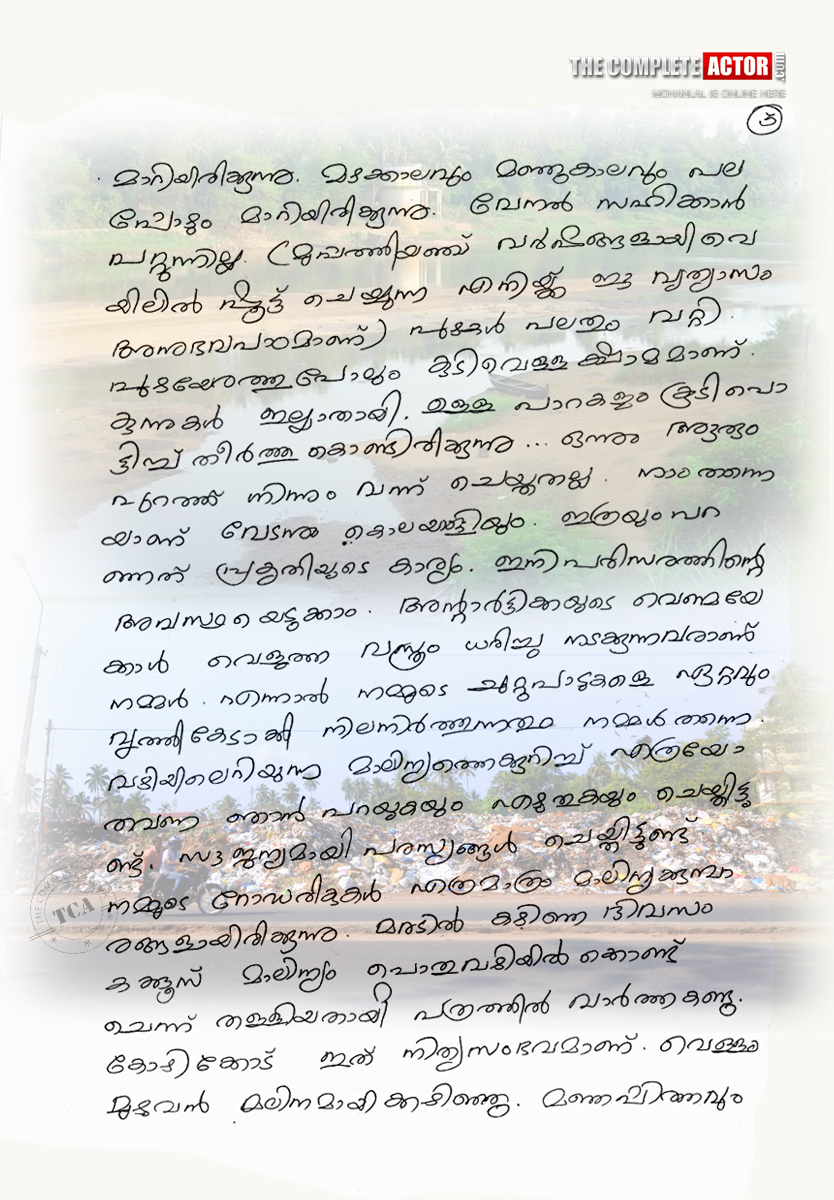 THE COMPLETE ACTOR .COM
MOHANLAL IS ONLINE HERE
3
മാറിയിരിക്കുന്നു. മഴക്കാലവും മഞ്ഞുകാലവും പല
പ്പോഴും മാറിയിരിക്കുന്നു. വേനൽ സഹിക്കാൻ
പറ്റുന്നില്ല. (മുപ്പത്തിയഞ്ച് വർഷങ്ങളായി വെ
യിലിൽ ഷൂട്ട് ചെയ്യുന്ന എനിയ്ക്ക് ഈ വ്യത്യാസം
അനുഭവപാഠമാണ്) പുഴകൾ പലതും വറ്റി.
പുഴയോരത്തുപോലും കുടിവെള്ള ക്ഷാമമാണ്.
കുന്നുകൾ ഇല്ലാതായി. ഉള്ള പാറകളും കൂടി പൊ
ട്ടിച്ച് തീർത്തു കൊണ്ടിരിക്കുന്നു ... ഒന്നും ആരും
പുറത്ത് നിന്നും വന്ന് ചെയ്തതല്ല. നാം തന്നെ
യാണ് വേടനും കൊലയാളിയും. ഇത്രയും പറ
ഞ്ഞത് പ്രകൃതിയുടെ കാര്യം. ഇനി പരിസരത്തിന്റെ
അവസ്ഥയെടുക്കാം. അന്റാർട്ടിക്കയുടെ വെണ്മയേ
ക്കാൾ വെളുത്ത വസ്ത്രം ധരിച്ചു നടക്കുന്നവരാണ്
നമ്മൾ. എന്നാൽ നമ്മുടെ ചുറ്റുപാടുകളെ ഏറ്റവും
വൃത്തികേടാക്കി നിലനിർത്തുന്നതും നമ്മൾ തന്നെ.
വഴിയിലെറിയുന്ന മാലിന്യത്തെക്കുറിച്ച് എത്രയോ
തവണ ഞാൻ പറയുകയും എഴുതുകയും ചെയ്തിട്ടു
ണ്ട്. സൗജന്യമായി പരസ്യങ്ങൾ ചെയ്തിട്ടുണ്ട്
നമ്മുടെ റോഡരികുകൾ എത്രമാത്രം മാലിന്യക്കൂമ്പാ
രങ്ങളായിരിക്കുന്നു. മരടിൽ കഴിഞ്ഞ ദിവസം
കക്കൂസ് മാലിന്യം പൊതുവഴിയിൽ കൊണ്ട്
ചെന്ന് തള്ളിയതായി പത്രത്തിൽ വാർത്ത കണ്ടു.
കോഴിക്കോട് ഇത് നിത്യസംഭവമാണ്. വെള്ളം
മുഴുവൻ മലിനമായിക്കഴിഞ്ഞു. മഞ്ഞപ്പിത്തവും
THE COMPLETE
TCA